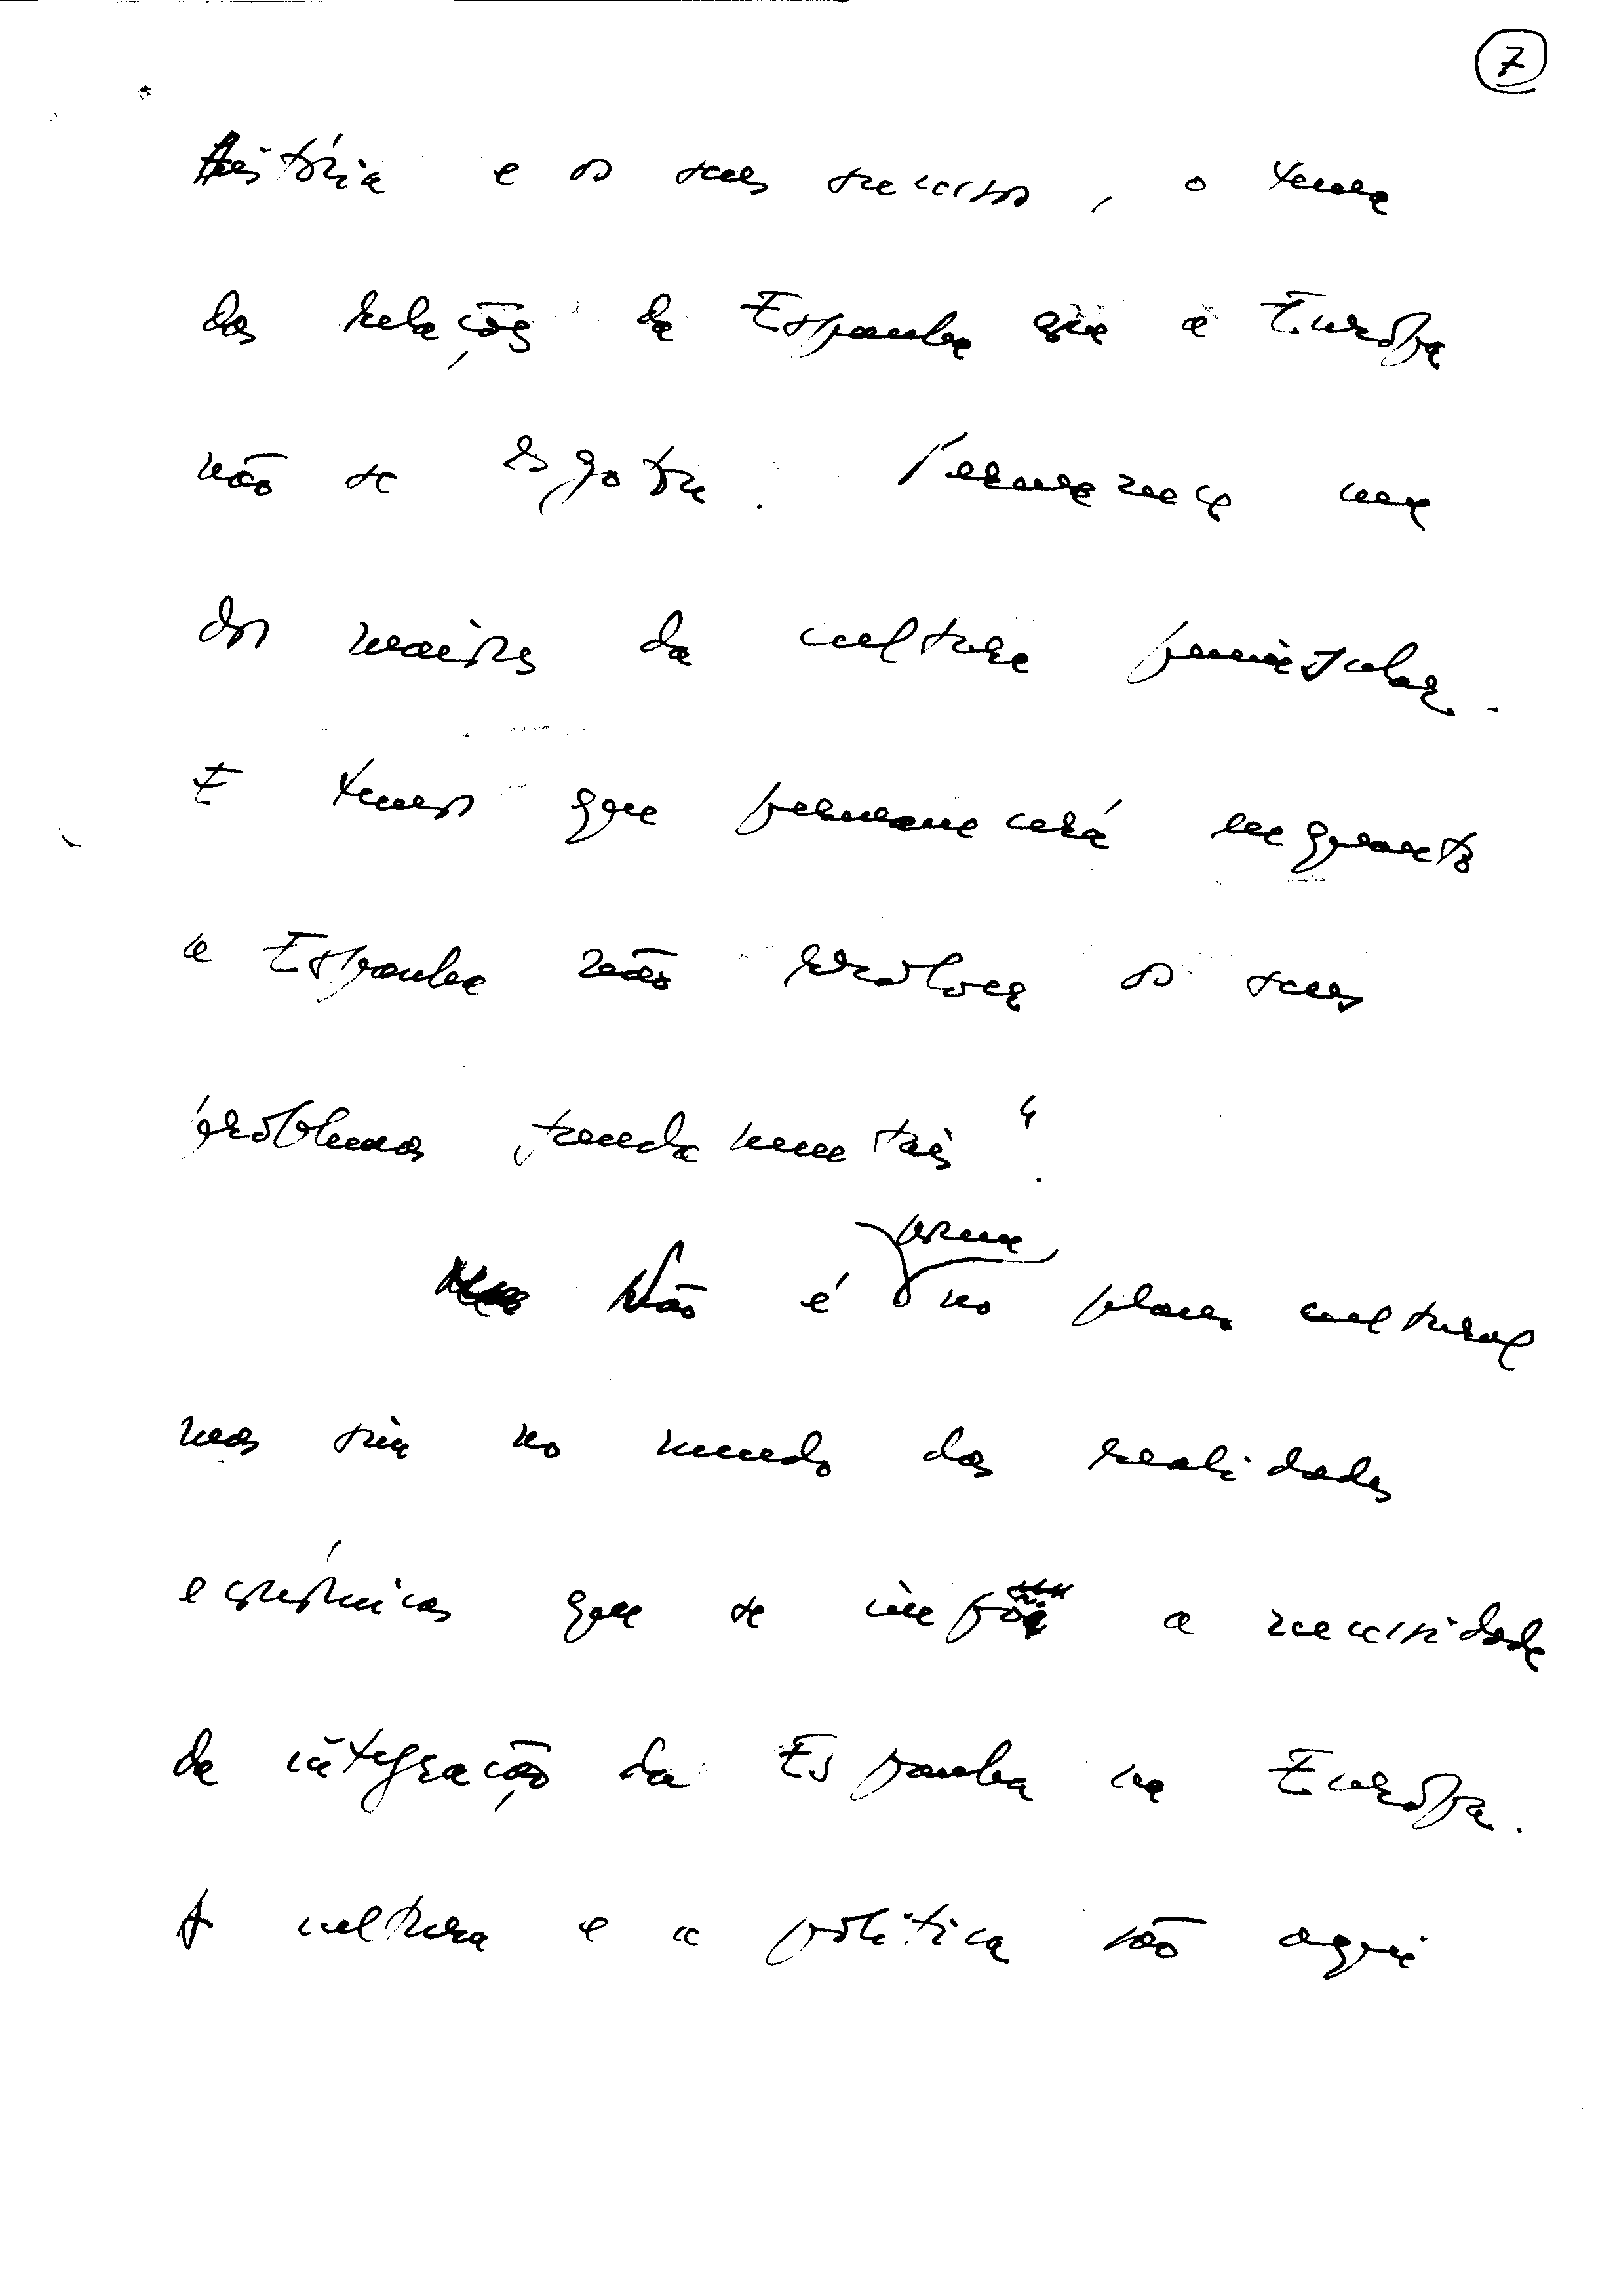 7
história e os seus sucessos, o tema
das relações da Espanha com a Europa
não se esgotou. Permanece um
dos maiores da cultura peninsular.
E temos que permanecerá enquanto
a Espanha não resolver os seus
problemas fundamentais".
Não é porém no plano cultural
mas sim no mundo das realidades
económicas que se impõe a necessidade
de integração da Espanha na Europa.
A cultura e a política são aqui